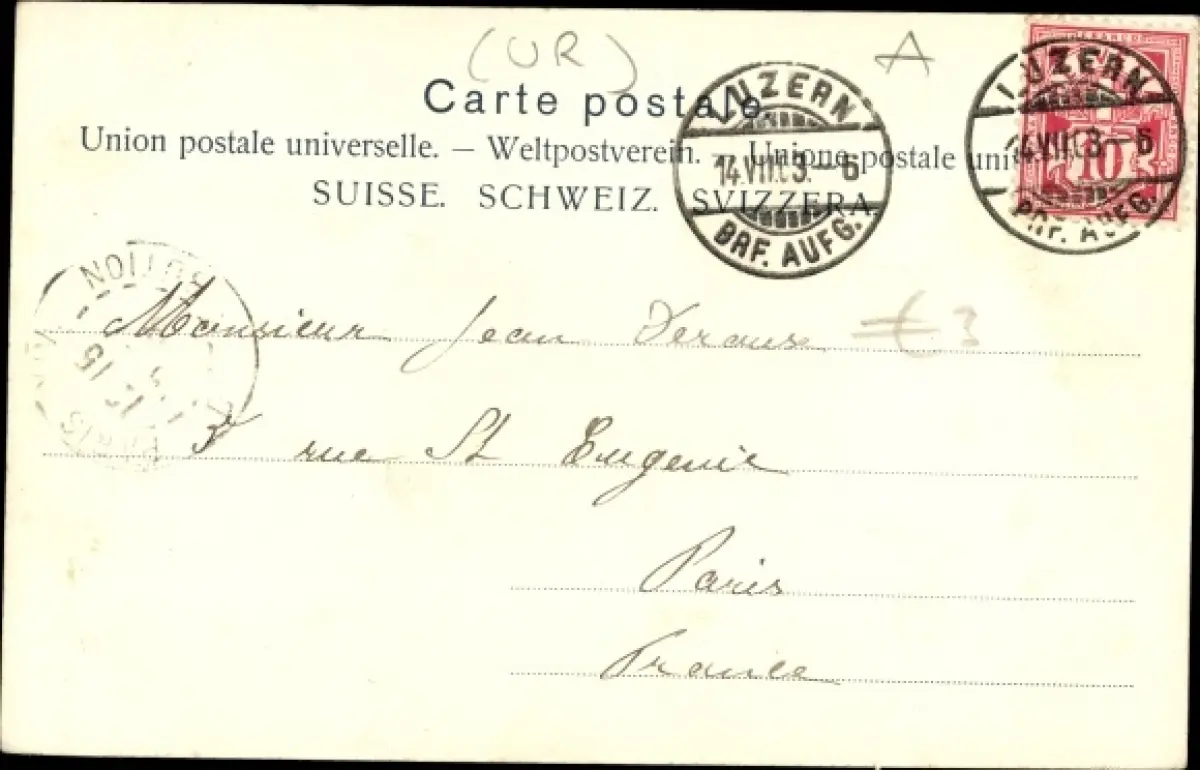 (UR) A
Carte postale
Union postale universelle. — Weltpostverein. — Unione postale uni
SUISSE. SCHWEIZ. SVIZZERA.
LUZERN
14.VII.03.-6
BRF. AUFG.
FRANCO
10
LUZERN
14.VII.03.-6
BRF. AUFG.
Monsieur Jean Veraux
3
3 rue St Eugenie
Paris
France
PARIS
DISTRIBUTION
15